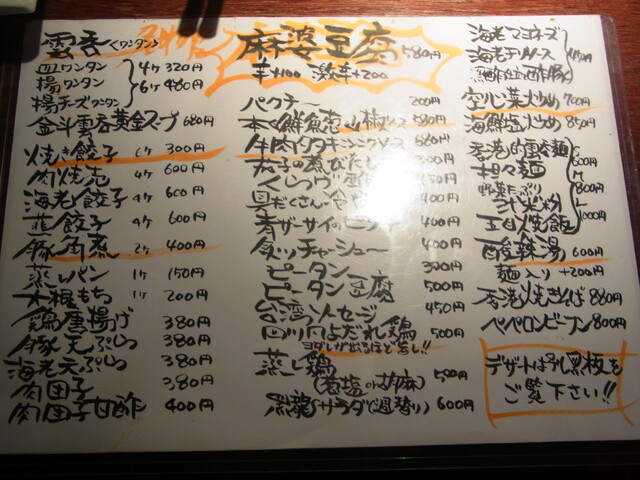 雲呑<ワンタン>
皿ワンタン 4ヶ 320円
揚ワンタン 6ヶ 480円
揚チーズワンタン
金斗雲呑黄金スープ 680円
焼き餃子 6ヶ 300円
肉焼売 4ヶ 600円
海老餃子 4ヶ 600円
韮餃子 4ヶ 600円
豚角煮 2ヶ 400円
蒸しパン 1ヶ 150円
大根もち 1ヶ 200円
鶏唐揚げ 380円
豚天ぷら 380円
海老天ぷら 380円
肉団子 380円
肉団子甘酢 400円
麻婆豆腐 580円
羊+100 激辛+200
パクチー 200円
鮮魚葱山椒ソース 680円
牛肉タタキニンニクソース 680円
茄子の煮びたし
具だくさん 400円
青ザーサイ 400円
炙りチャーシュー 400円
ピータン 300円
ピータン豆腐 500円
台湾ソーセージ 450円
四川よだれ鶏 500円
ヨダレが出るほど旨し!!
蒸し鶏
(葱塩or胡麻) 500円
黒龍(サラダで週替り) 600円
海老マヨネーズ
海老チリソース
黒酢の酢豚
空心菜炒め 700円
海鮮塩炒め 850円
香港的雲呑麺
担々麺 S 600円
野菜たっぷり M 800円
汁米粉 L 1000円
五目焼飯
酸辣湯 600円
麺入り +200円
香港焼きそば 880円
ペペロンビーフン 800円
デザートは黒板を
ご覧下さい!!